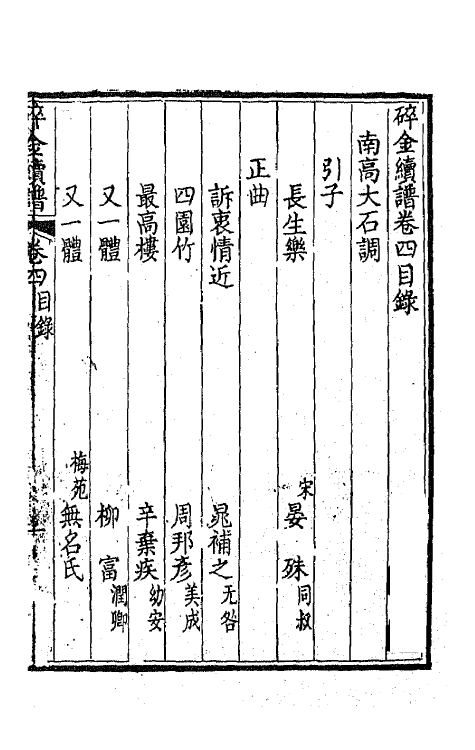 碎金續譜卷四目錄
南高大石調
引子
長生樂 宋晏殊同叔
正曲
訴衷情近 晁補之无咎
四園竹 周邦彥美成
最高樓 辛棄疾幼安
又一體 柳富潤卿
又一體 梅苑無名氏
碎金續譜 卷四目錄